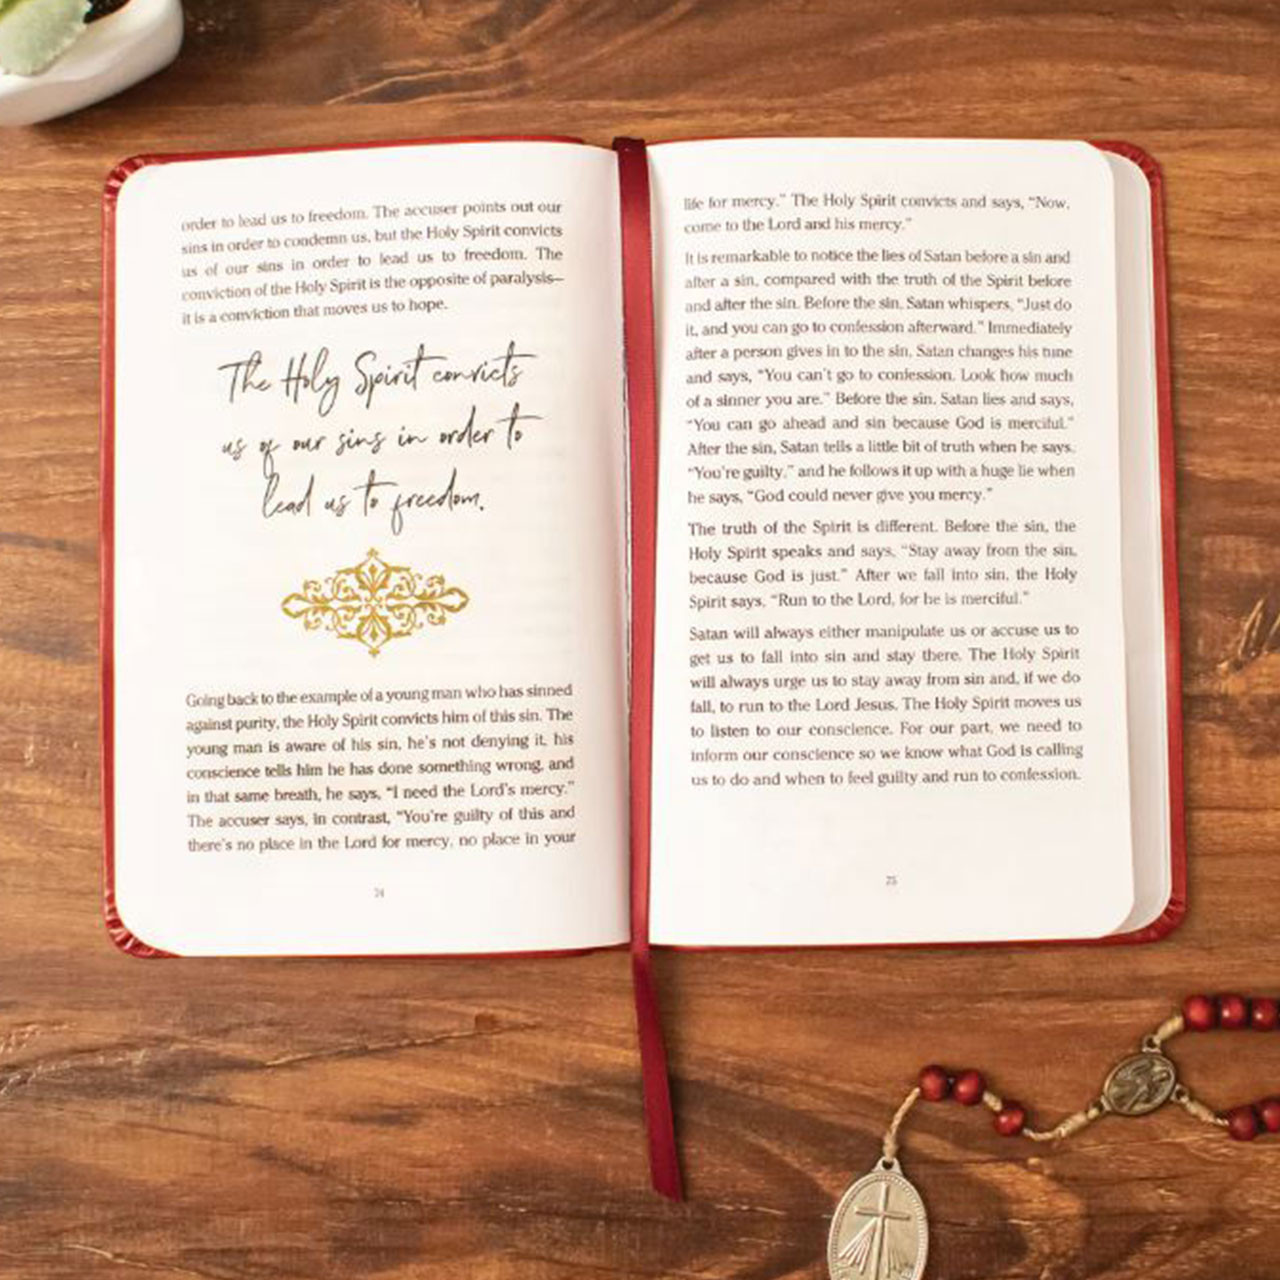 order to lead us to freedom. The accuser points out our
sins in order to condemn us, but the Holy Spirit convicts
us of our sins in order to lead us to freedom. The
conviction of the Holy Spirit is the opposite of paralysis—
it is a conviction that moves us to hope.
The Holy Spirit convicts
us of our sins in order to
lead us to freedom.
Going back to the example of a young man who has sinned
against purity, the Holy Spirit convicts him of this sin. The
young man is aware of his sin, he's not denying it, his
conscience tells him he has done something wrong, and
in that same breath, he says, “I need the Lord's mercy.”
The accuser says, in contrast, “You're guilty of this and
there's no place in the Lord for mercy, no place in your
74
life for mercy.” The Holy Spirit convicts and says, “Now,
come to the Lord and his mercy.”
It is remarkable to notice the lies of Satan before a sin and
after a sin, compared with the truth of the Spirit before
and after the sin. Before the sin, Satan whispers, “Just do
it, and you can go to confession afterward.” Immediately
after a person gives in to the sin, Satan changes his tune
and says, “You can't go to confession. Look how much
of a sinner you are.” Before the sin, Satan lies and says,
“You can go ahead and sin because God is merciful.”
After the sin, Satan tells a little bit of truth when he says,
“You're guilty,” and he follows it up with a huge lie when
he says, “God could never give you mercy.”
The truth of the Spirit is different. Before the sin, the
Holy Spirit speaks and says, “Stay away from the sin,
because God is just.” After we fall into sin, the Holy
Spirit says, “Run to the Lord, for he is merciful.”
Satan will always either manipulate us or accuse us to
get us to fall into sin and stay there. The Holy Spirit
will always urge us to stay away from sin and, if we do
fall, to run to the Lord Jesus. The Holy Spirit moves us
to listen to our conscience. For our part, we need to
inform our conscience so we know what God is calling
us to do and when to feel guilty and run to confession.
75